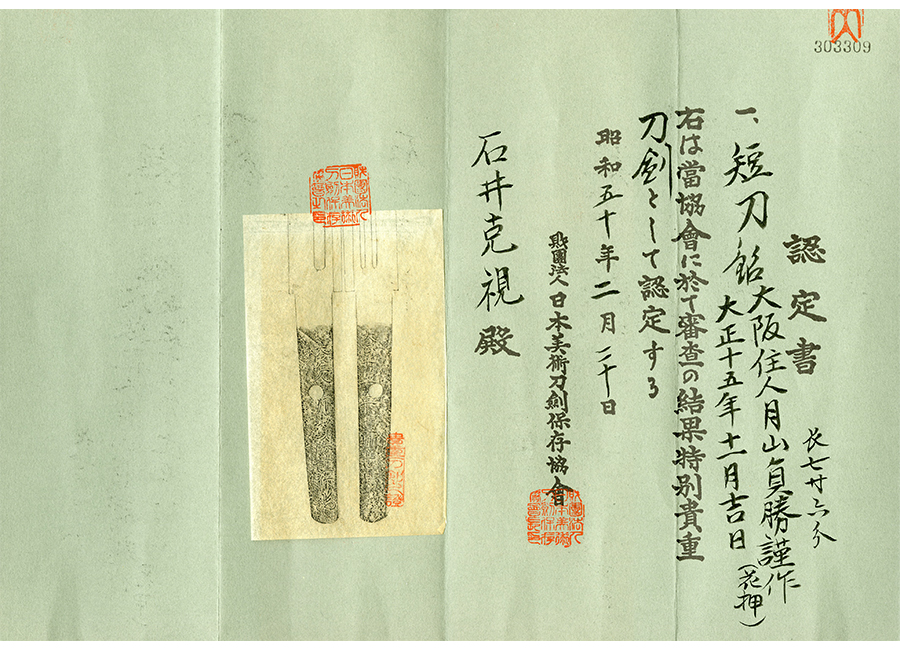 303309
認定書
一、短刀 銘 大阪住人月山貞勝謹作
大正十五年十一月吉日(花押)
長七寸六分
右は當協會に於て審査の結果特別貴重
刀劍として認定する
昭和五十年二月二十日
財團法人日本美術刀劍保存協會
石井克視殿